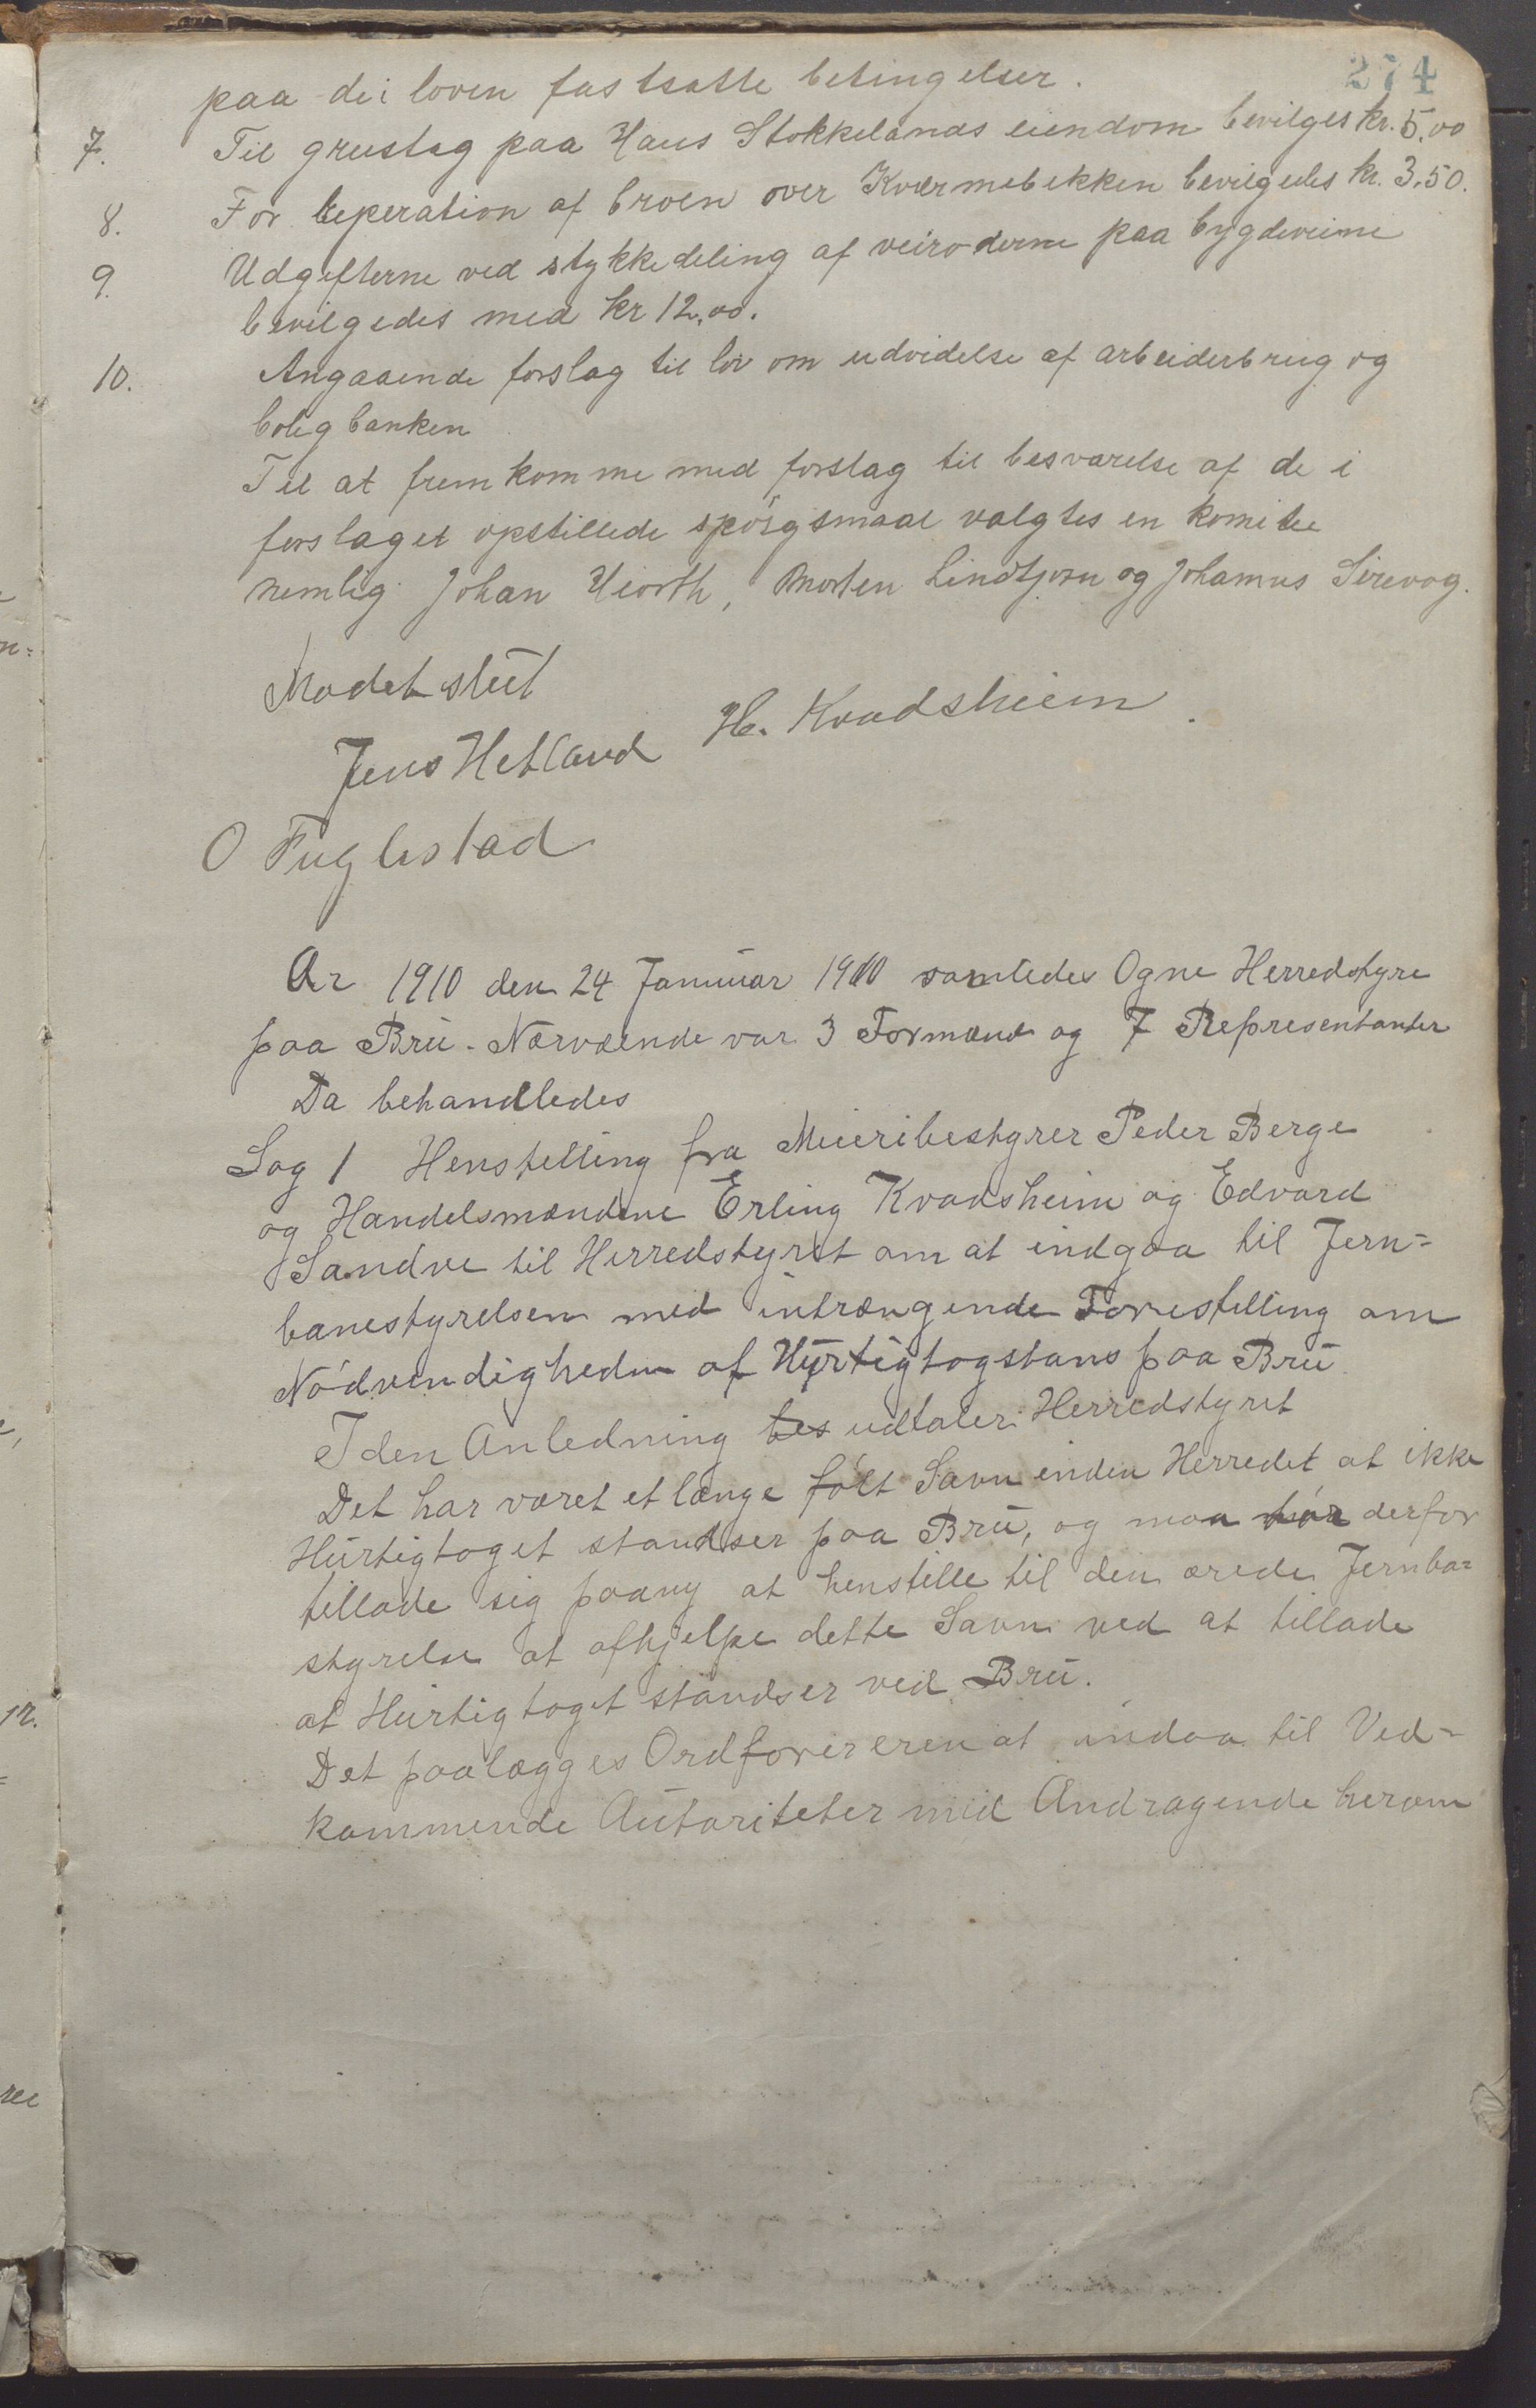 274
paa de i loven fastsatte betingelser.
7. Til grustag paa Hans Stokkelands eiendom bevilges kr. 5.00
8. For reperation af broen over Kvernebekken bevilgedes kr. 3.50.
9. Udgifterne ved stykkedeling af veiroderne paa bygdeveiene
bevilgedes med kr 12,00.
10. Angaaende forslag til lov om udvidelse af arbeiderbrug og
boligbanken
Til at fremkomme med forslag til besvarelse af de i
forslaget opstillede spörgsmaal valgtes en komite
nemlig Johan Hiorth, Morten Lindtjørn og Johannes Sirevog.
Mødet slut
Jens Hetland H. Kvadsheim.
O Fuglestad
Ar 1910 den 24 Januar 1910 samledes Ogne Herredstyre
paa Bru. Nærværende var 3 Formænd og 7 Repræsentanter
Da behandledes
Sag 1 Henstelling fra Meieribestyrer Peder Berge
og Handelsmændene Erling Kvadsheim og Edvard
Sandve til Herredstyret om at indgaa til Jern=
banestyrelsen med intrængende Forestelling om
Nödvendigheden af Hurtigtogstans paa Bru
I den Anledning udtaler Herredstyret
Det har været et længe fölt Savn inden Herredet at ikke
Hurtigtoget standser paa Bru, og maa derfor
tillade sig paany at henstille til den ærede Jernba=
styrelse at afhjelpe dette Savn ved at tillade
at Hurtigtoget standser ved Bru.
Det paalægges Ordföreren at indgaa til Ved=
kommende Autoriteter med Andragende herom